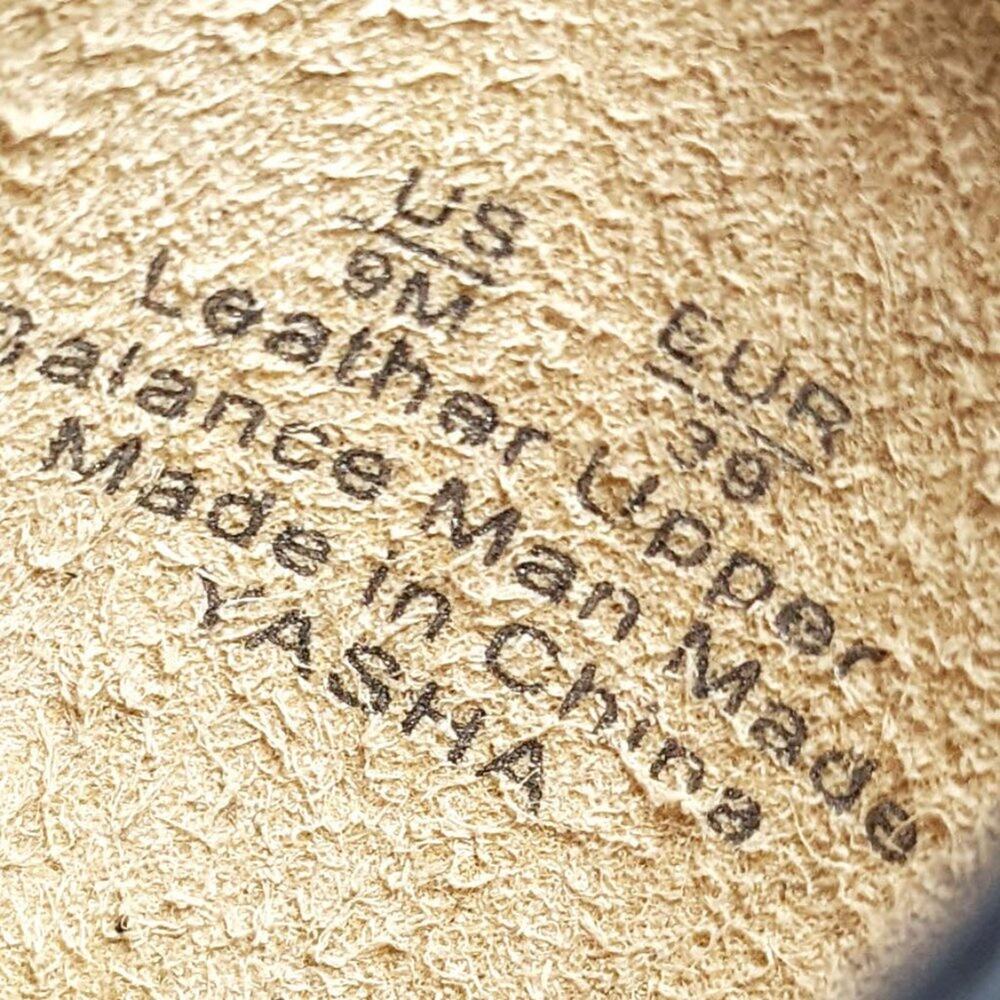 US EUR
9M 39
Leather Upper
Balance Man Made
Made in China
YASHA